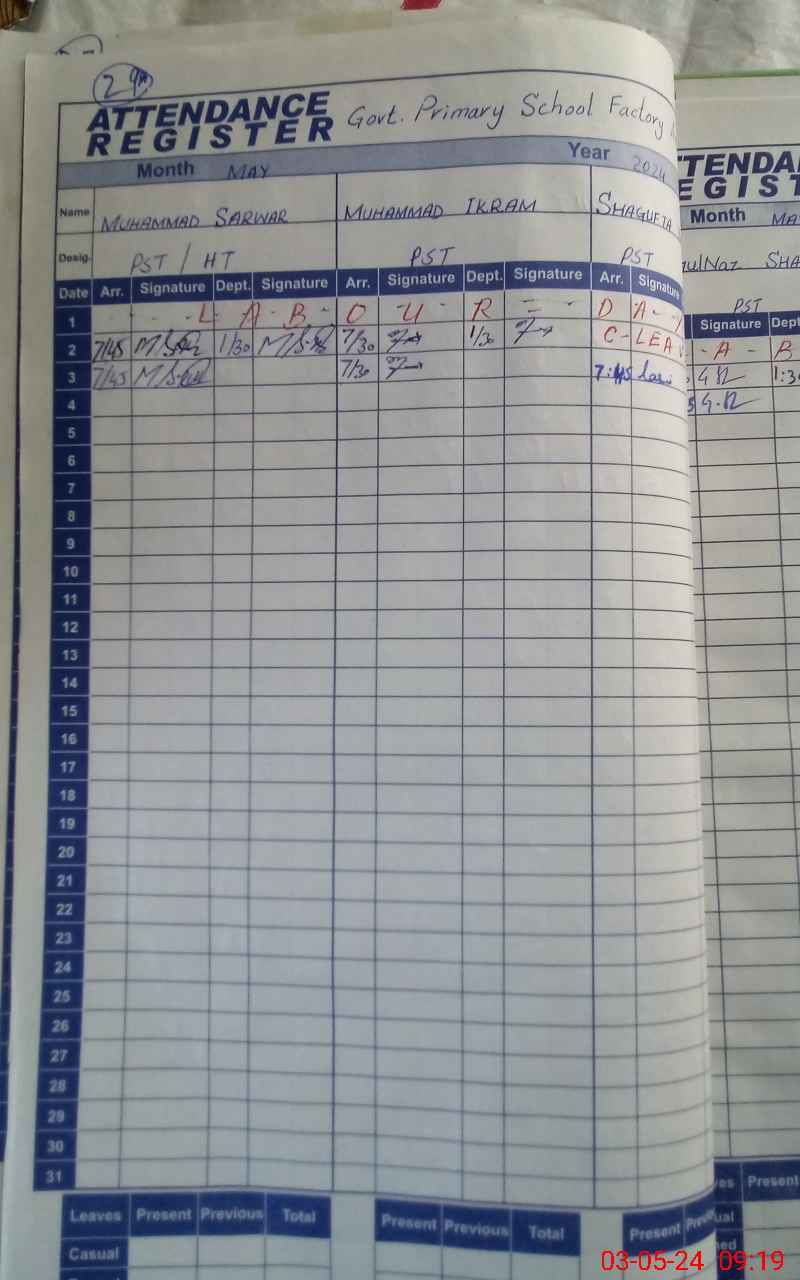 29
ATTENDANCE REGISTER Govt. Primary School Factory
Month MAY Year 2024
Name MUHAMMAD SARWAR MUHAMMAD IKRAM SHAGUFTA
Desig. PST / HT PST PST
Date Arr. Signature Dept. Signature Arr. Signature Dept. Signature Arr. Signature
1 - - L - A - B - O - U - R - - D A - Y
2 7/45 1/30 7/30 1/30 C-LEA
3 7/45 7/30 7:45
4
5
6
7
8
9
10
11
12
13
14
15
16
17
18
19
20
21
22
23
24
25
26
27
28
29
30
31
Leaves Present Previous Total Present Previous Total Present
Casual
TTENDA
EGIST
Month MA
ulNaz SHA
PST
Signature Dept
- A - B
1:3
Present
03-05-24 09:19